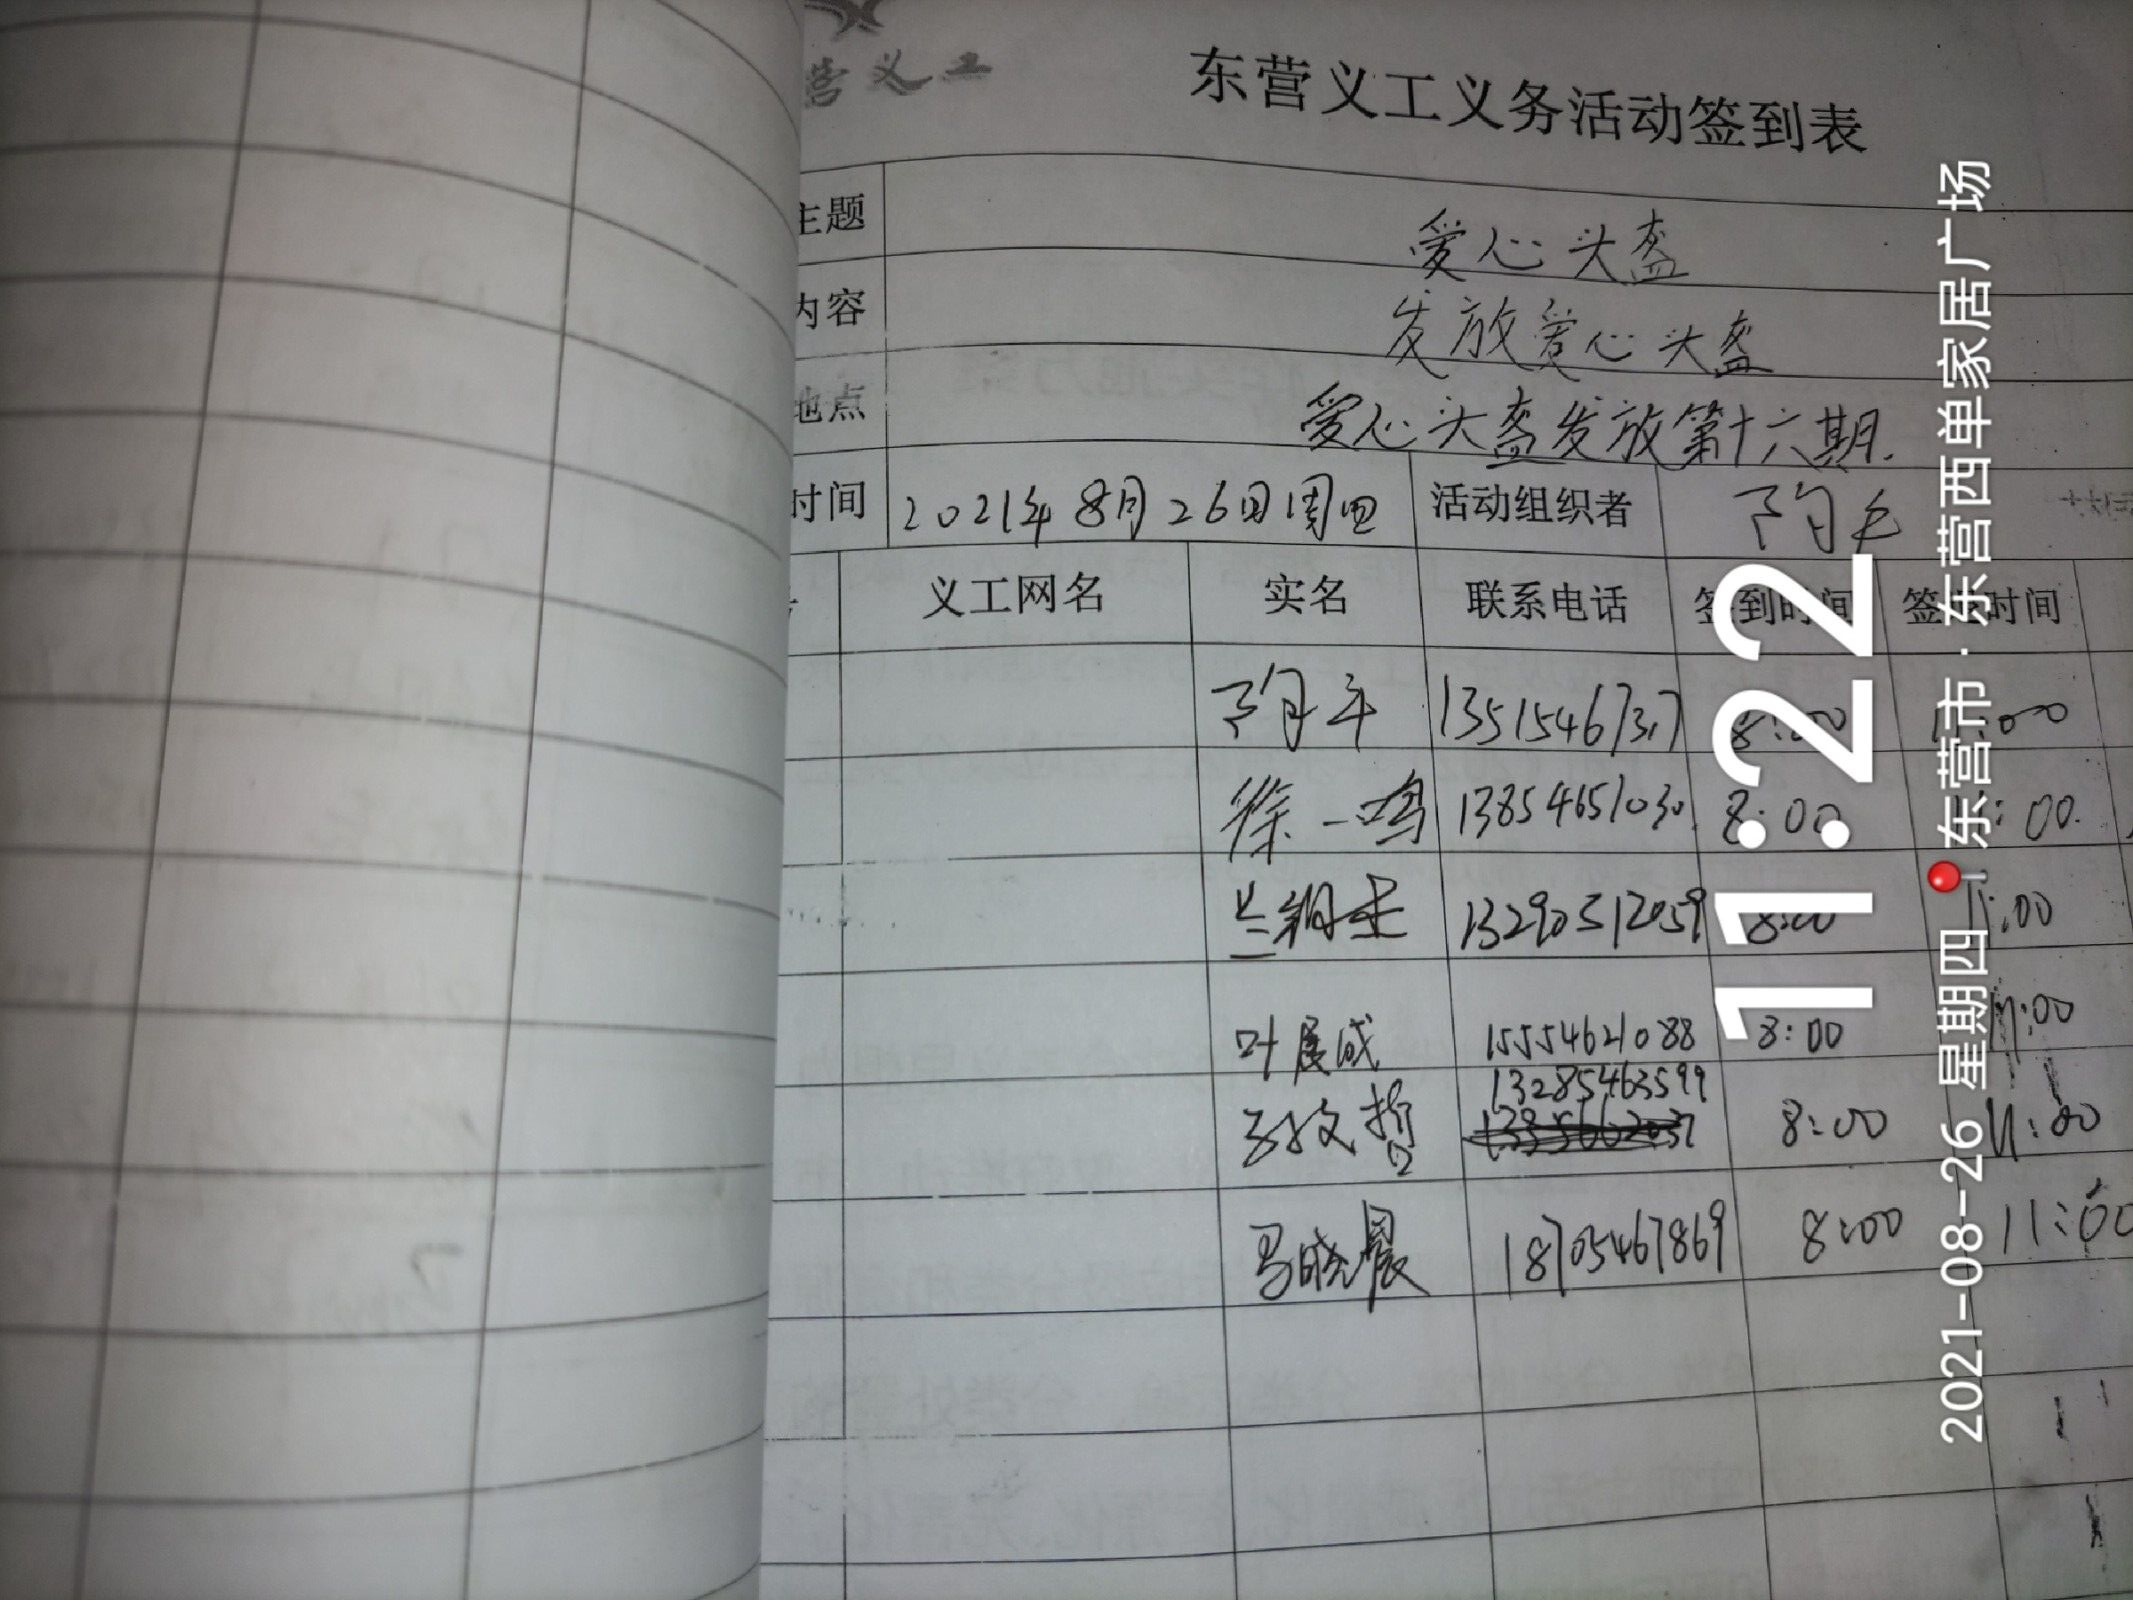 营义工
东营义工义务活动签到表
主题 爱心头盔
内容 发放爱心头盔
地点 爱心头盔发放第十六期.
时间 2021年8月26日周四 活动组织者
义工网名 实名 联系电话 签到时间 签退时间
8:00
徐一鸣 13854651030 8:00 :00
13290512059 8:00 :00
叶展成 15554621088 8:00 11:00
13285463599
孙文哲 8:00 11:00
马晓晨 18705467869 8:00 11:00
11:22
2021-08-26 星期四 东营市·东营西单家居广场